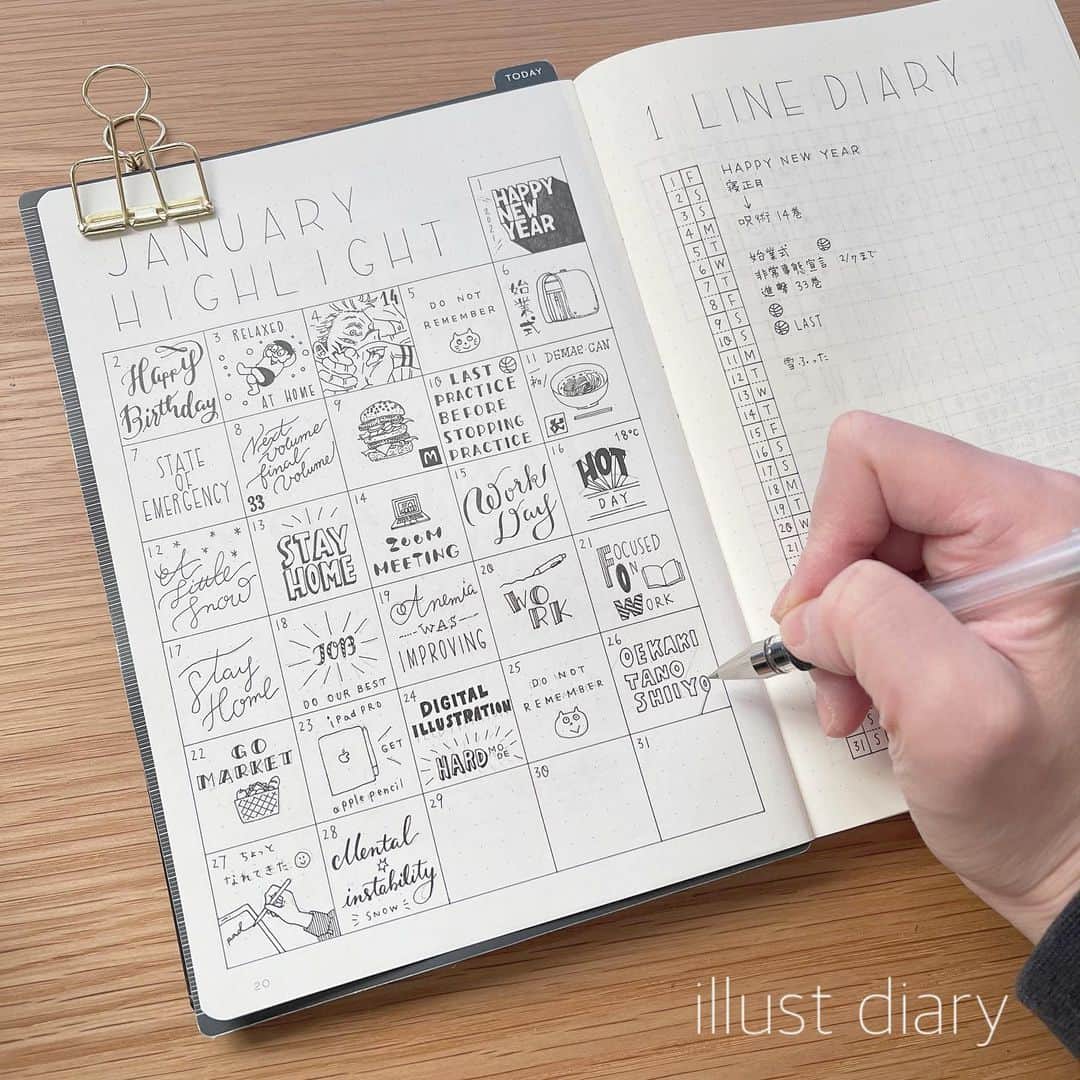 TODAY
JANUARY
HIGHLIGHT
1
2021
HAPPY
NEW
YEAR
2
Happy
Birthday
3 RELAXED
AT HOME
4
14
5
DO NOT
REMEMBER
6
始業式
7
STATE
OF
EMERGENCY
8
Next
volume
final
volume
33
9
M
10 LAST
PRACTICE
BEFORE
STOPPING
PRACTICE
11
12
A
Little
Snow
13
STAY
HOME
14
ZOOM
MEETING
15
Work
Day
16
18°C
HOT
DAY
17
Stay
Home
18
JOB
DO OUR BEST
19
Anemia
WAS
IMPROVING
20
WORK
21
FOCUSED
ON
WORK
22
GO
MARKET
23
iPad PRO
GET
apple pencil
24
DIGITAL
ILLUSTRATION
HARD MODE
25
DO NOT
REMEMBER
26
OEKAKI
TANO
SHIIYO
27 ちょっと
なれてきた
28
Mental
instability
SNOW
29
30
31
20
1 LINE DIARY
1 F
2 S
3 S
4 M
5 T
6 W
7 T
8 F
9 S
10 S
11 M
12 T
13 W
14 T
15 F
16 S
17 S
18 M
19 T
20 W
21
31 S
HAPPY NEW YEAR
寝正月
↓
呪術 14巻
始業式
非常事態宣言 2/7まで
進撃 33巻
LAST
雪ふった
illust diary